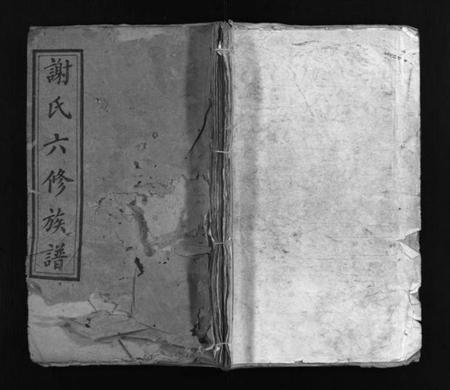 謝氏六修族譜